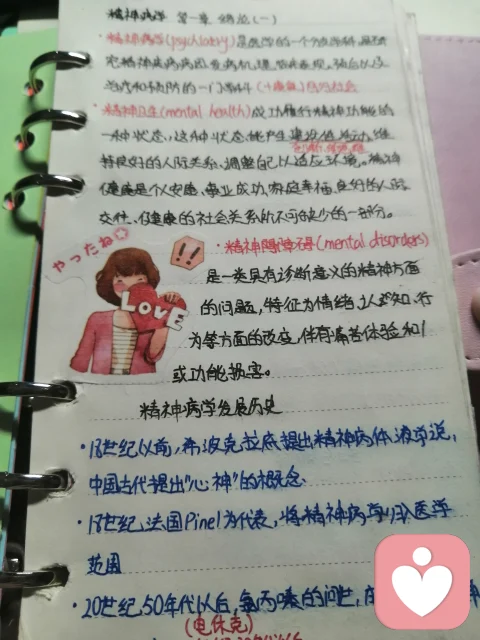 精神病学 第一章 绪论(一)
·精神病学(psychiatry)是医学的一个分支学科,是研
究精神疾病病因、发病机理、临床表现、预后以及
治疗和预防的一门学科(+康复)
·精神卫生(mental health)成功履行精神功能的
一种状态,这种状态能产生建设性活动,维
持良好的人际关系、调整自己以适应环境。精神
健康是个人安康、事业成功、家庭幸福、良好的人际
交往、健康的社会关系所不可缺少的一部分。
·精神障碍(mental disorders)
やったね
!!
LOVE
是一类具有诊断意义的精神方面
的问题,特征为情绪、认知、行
为等方面的改变,伴有痛苦体验和/
或功能损害。
精神病学发展历史
·18世纪以前,希波克拉底提出精神病体液学说,
中国古代提出"心神"的概念.
·18世纪,法国Pinel为代表,将精神病学归入医学
范围
·20世纪,50年代以后,氯丙嗪的问世,
(电休克)